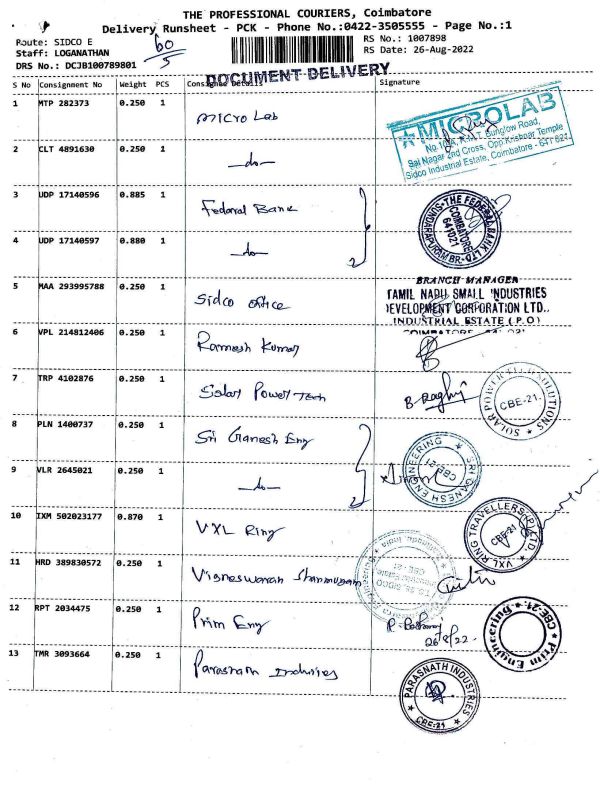 THE PROFESSIONAL COURIERS, Coimbatore
Delivery Runsheet - PCK - Phone No.:0422-3505555 - Page No.:1
Route: SIDCO E
Staff: LOGANATHAN
DRS No.: DCJB100789801
60/5
RS No.: 1007898
RS Date: 26-Aug-2022
DOCUMENT DELIVERY
S No Consignment No Weight PCS Consignee Details Signature
1 MTP 282373 0.250 1 Micro Lab
MICROLAB
Sidco Industrial Estate, Coimbatore - 641 021.
2 CLT 4891630 0.250 1 —do—
3 UDP 17140596 0.885 1 Federal Bank
THE FEDERAL BANK LTD
SUNDARAPURAM BR.
COIMBATORE
641021
4 UDP 17140597 0.880 1 —do— 2
5 MAA 293995788 0.250 1 Sidco office
BRANCH MANAGER
TAMIL NADU SMALL INDUSTRIES
DEVELOPMENT CORPORATION LTD..
INDUSTRIAL ESTATE (P.O)
6 VPL 214812406 0.250 1 Ramesh Kumar
7 TRP 4102876 0.250 1 Solar Power Tech
B. Raghu
CBE-21.
8 PLN 1400737 0.250 1 Sri Ganesh Eng
SRI GANESH ENGINEERING
CBE-21
9 VLR 2645021 0.250 1 —do— 2
10 IXM 502023177 0.870 1 VXL Ring
VXL RING TRAVELLERS (P) LTD.
CBE-21
11 HRD 389830572 0.250 1 Vigneswaran Shanmugam
12 RPT 2034475 0.250 1 Prim Eng
26/8/22.
Prim Engineering
CBE-21
13 TMR 3093664 0.250 1 Parasnath Industries
PARASNATH INDUSTRIES
CBE-21